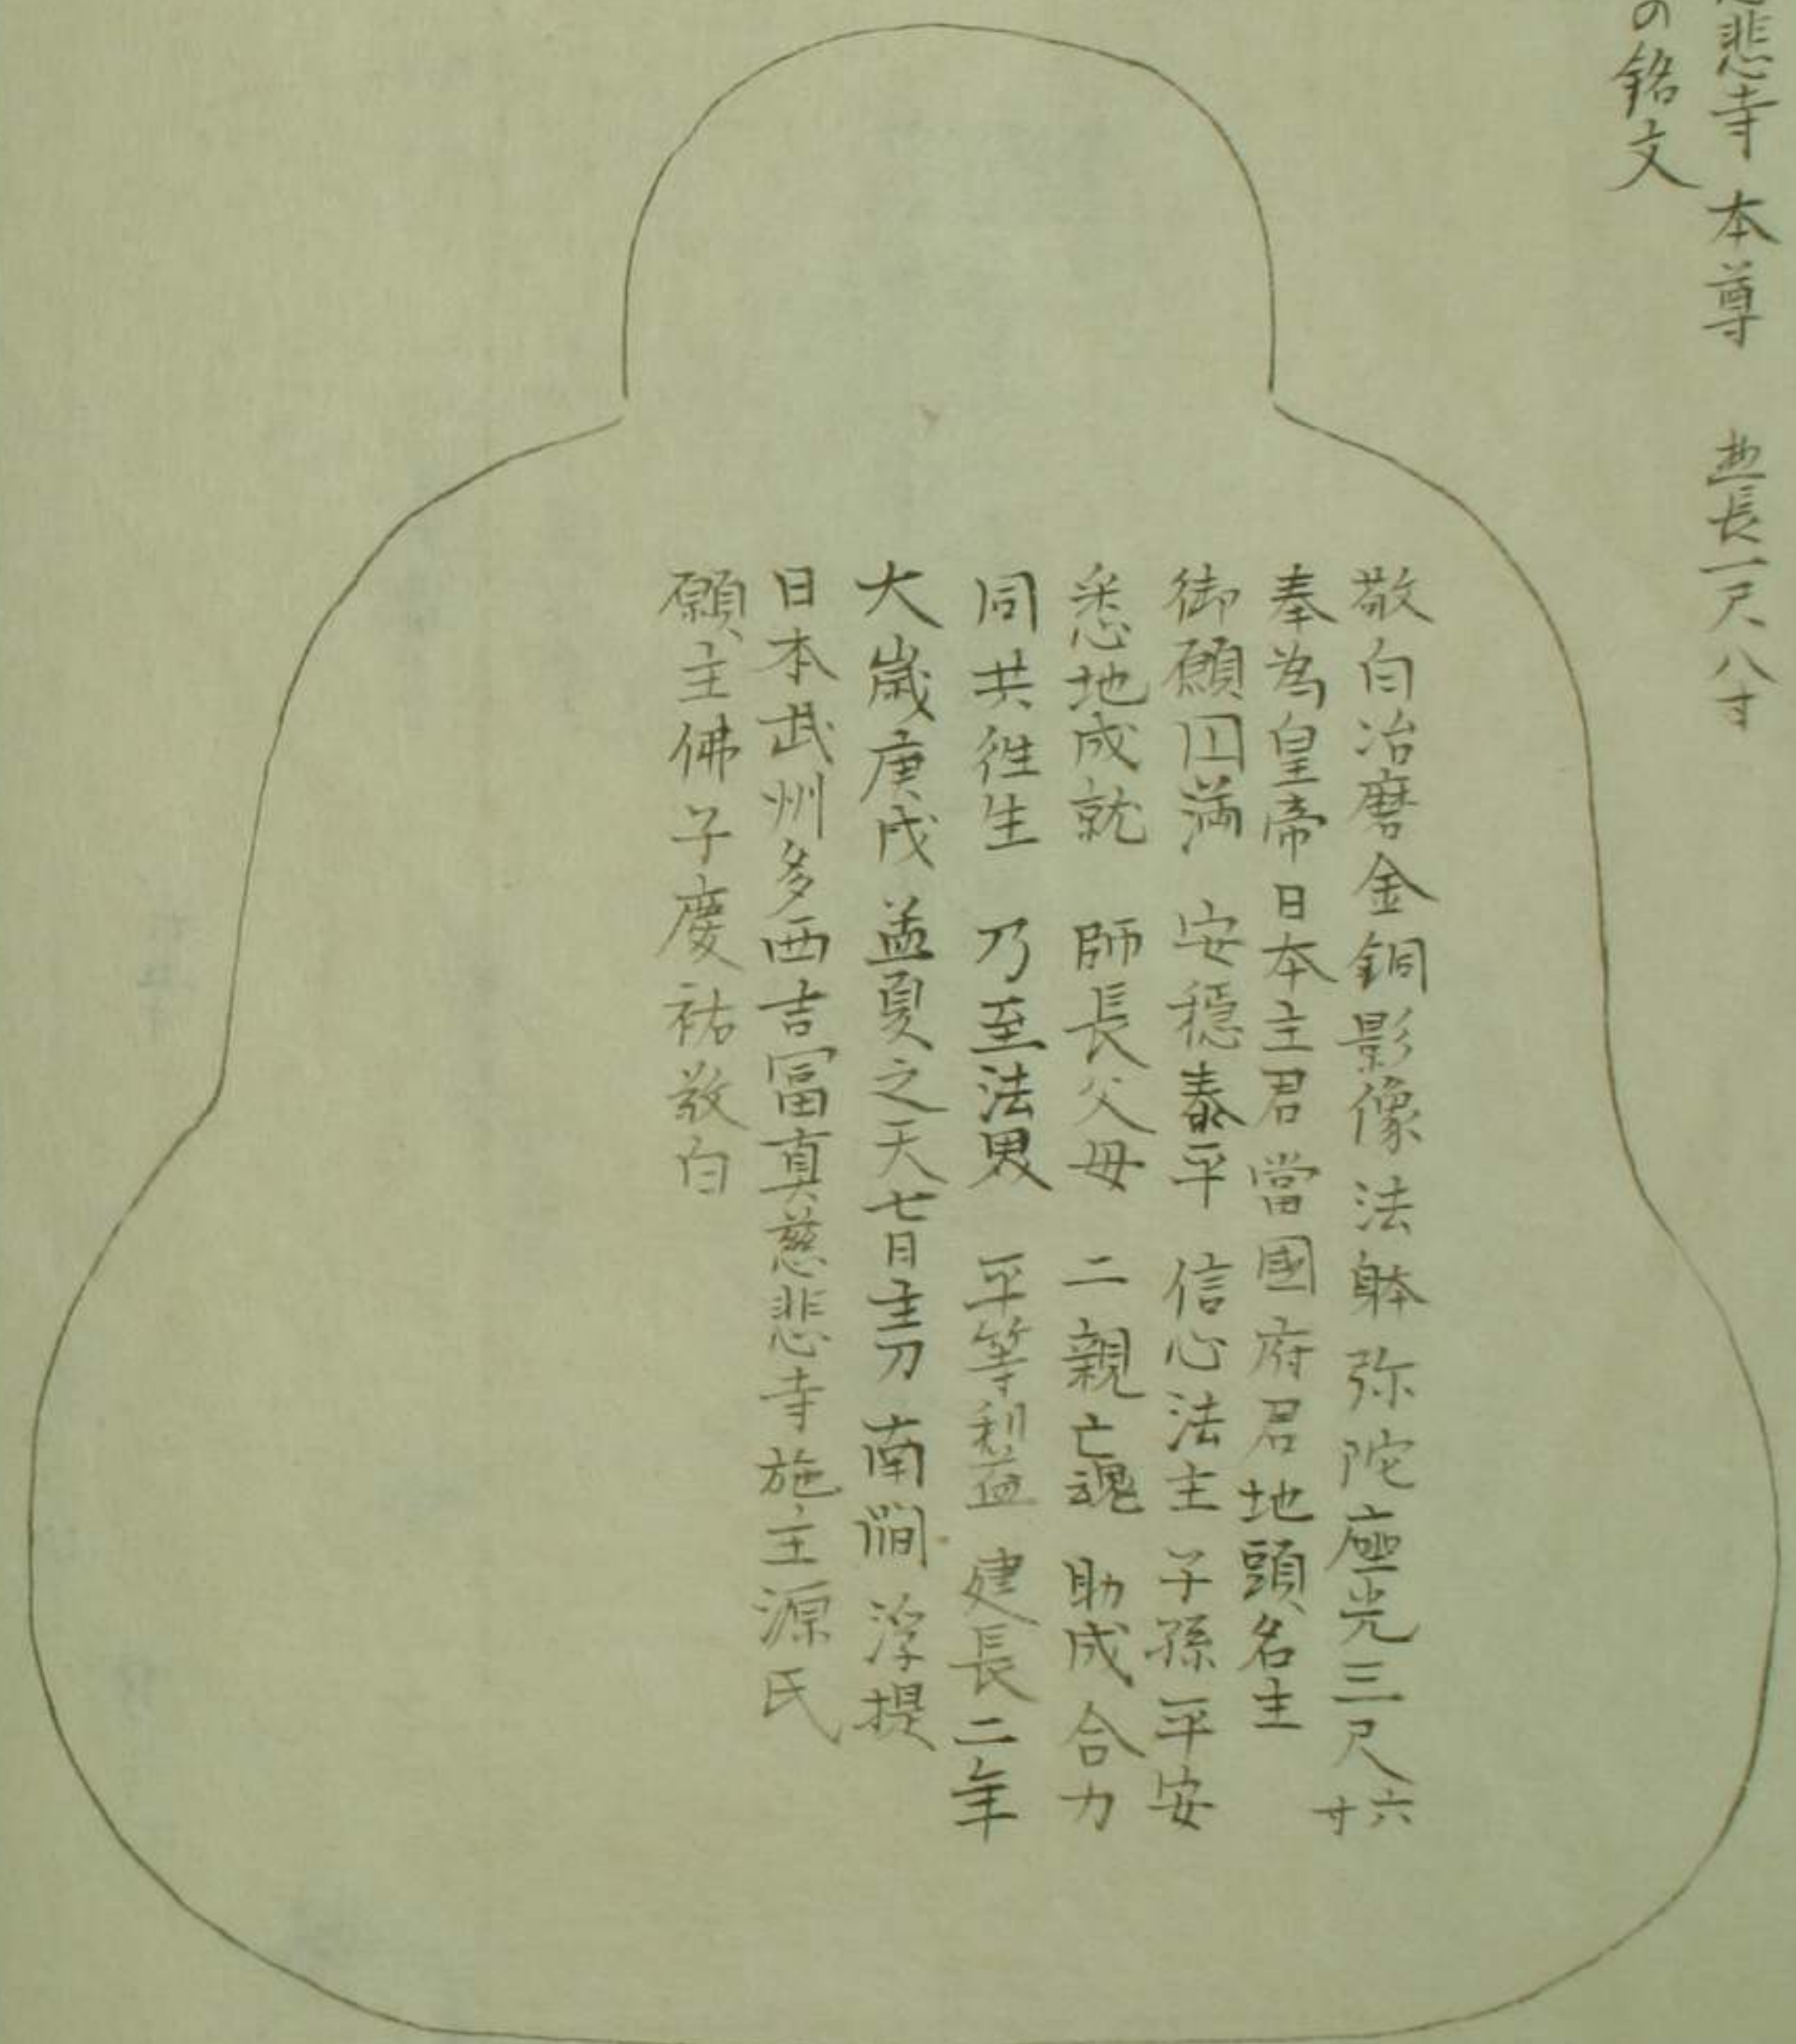 悲寺 本尊 丈長一尺八寸
の銘文
敬白冶磨金銅影像法躰弥陀座光三尺六寸
奉為皇帝日本主君當國府君地頭名主
御願円満 安穏泰平 信心法主 子孫平安
悉地成就 師長父母 二親亡魂 助成合力
同共徃生 乃至法界 平等利益 建長二年
大歳庚戌 孟夏之天七月 南閻浮提
日本武州多西吉冨真慈悲寺施主源氏
願主佛子慶祐敬白